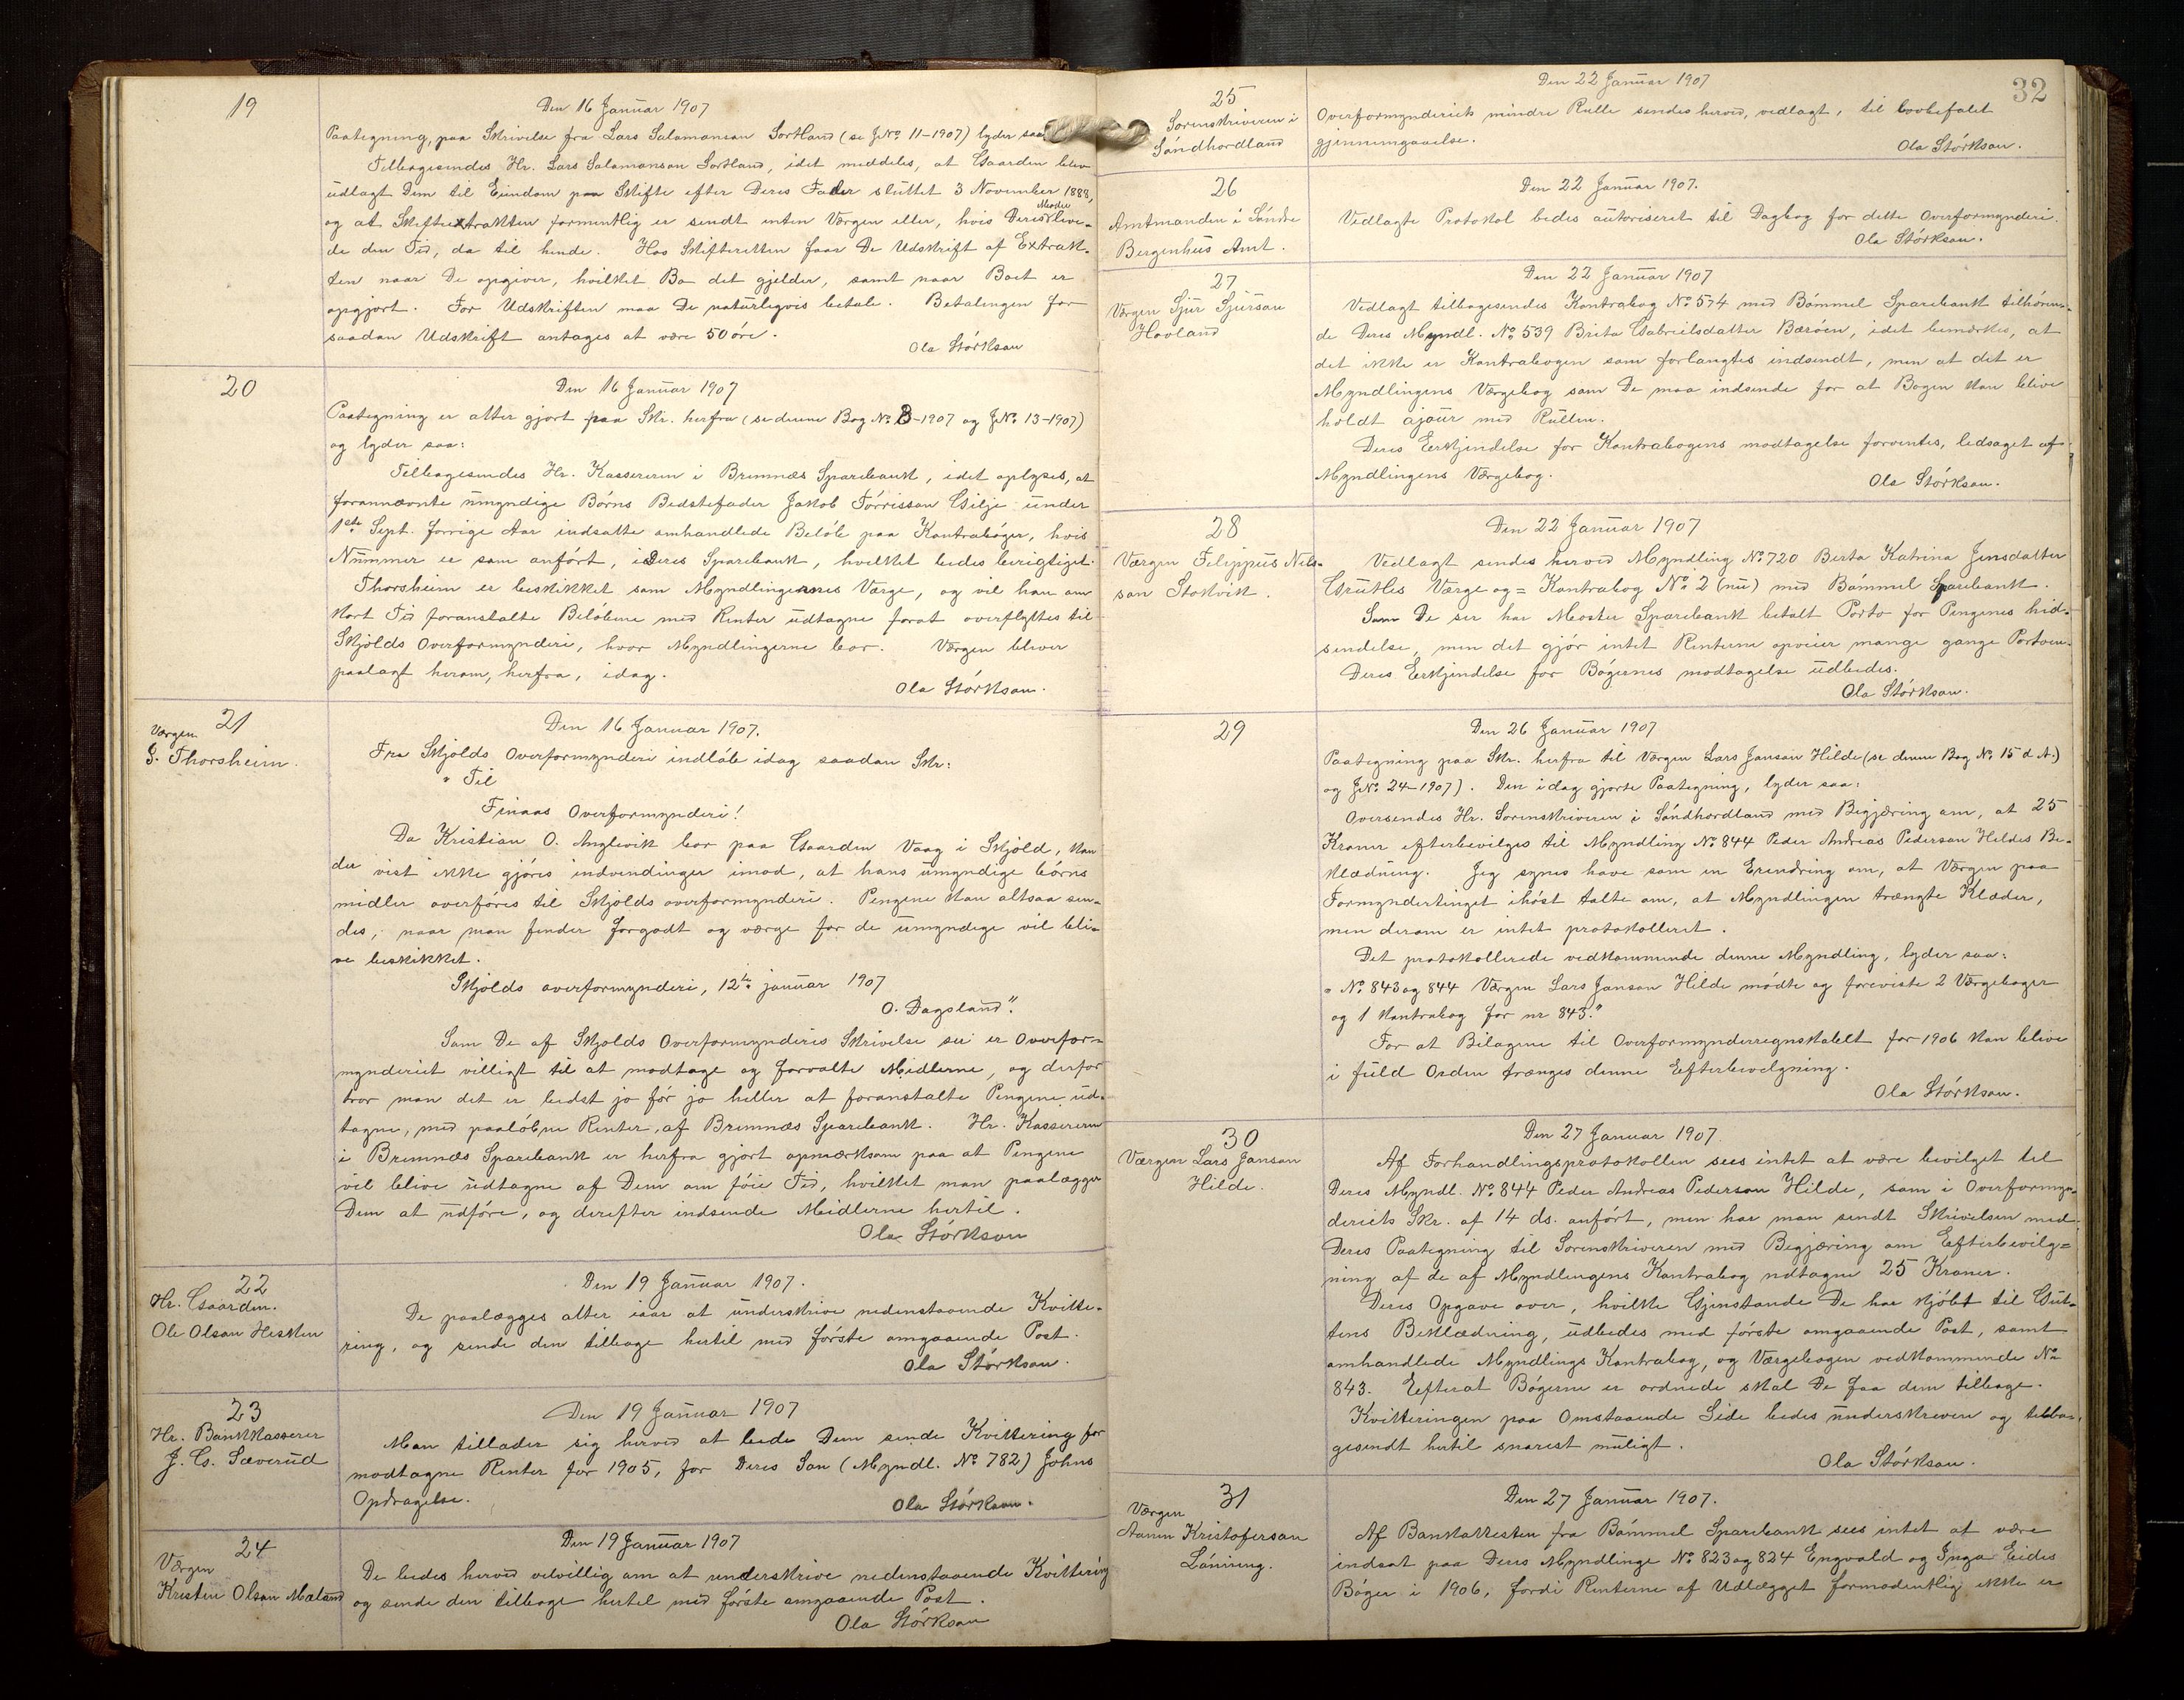 19
Den 16 Januar 1907
Paategning, paa Skrivelse fra Lars Salamonson Sortland (se JNo 11-1907) lyder saa
Tilbagesendes Hr. Lars Salamonson Sortland, idet meddeles, at Gaarden blev
udlagt Dem til Eiendom paa Skifte efter Deres Fader sluttet 3 November 1888,
og at Skifteextrakten formentlig er sendt enten Værgen eller, hvis Deres Moder leve-
de den Tid, da til hende. Hos Skifteretten faar De Udskrift af Extrak-
ten naar De opgiver, hvilket Bo det gjelder, samt naar Boet er
opgjort. For Udskriften maa De naturligvis betale. Betalingen for
saadan Udskrift antages at være 50 öre.
Ola Störkson
20
Den 16 Januar 1907
Paategning er atter gjort paa Skr. herfra (se denne Bog No. 8-1907 og JNo. 13-1907)
og lyder saa:
Tilbagesendes Hr. Kassereren i Bremnæs Sparebank, idet oplyses, at
forannævnte umyndige Börns Bedstefader Jakob Törrisson Gilje under
1ste Sept. forrige Aar indsatte omhandlede Belöb paa Kontraböger, hvis
Nummer er som anfört, i Deres Sparebank, hvilket bedes berigtiget.
Thorsheim er beskikket som Myndlingernes Værge, og vil han om
kort Tid foranstalte Belöbene med Renter udtagne forat overflyttes til
Skjolds Overformynderi, hvor Myndlingerne bor. Værgen bliver
paalagt herom, herfra, idag.
Ola Störkson.
21
Værgen
G. Thorsheim.
Den 16 Januar 1907.
Fra Skjolds Overformynderi indlöb idag saadan Skr:
" Til
Finaas Overformynderi!
Da Kristian O. Anglevik bor paa Gaarden Vaag i Skjold, kan
der vist ikke gjöres indvendinger imod, at hans umyndige börns
midler overföres til Skjolds overformynderi. Pengene kan altsaa sen-
des, naar man finder forgodt og værge for de umyndige vil bli-
ve beskikket.
Skjolds overformynderi, 12te januar 1907
O. Dagsland".
Som De af Skjolds Overformynderis Skrivelse ser er Overfor-
mynderiet villigt til at modtage og forvalte Midlerne, og derfor
tror man det er bedst jo för jo heller at foranstalte Pengene ud-
tagne, med paalöbne Renter, af Bremnæs Sparebank. Hr. Kassereren
i Bremnæs Sparebank er herfra gjort opmærksom paa at Pengene
vil blive udtagne af Dem om föie Tid, hvilket man paalægger
Dem at udföre, og derefter indsende Midlerne hertil.
Ola Störkson
22
Hr. Gaardm.
Ole Olson Hesken
Den 19 Januar 1907.
De paalægges atter iaar at underskrive nedenstaaende Kvitte-
ring, og sende den tilbage hertil med förste omgaaende Post.
Ola Störkson.
23
Hr. Bankkasserer
J. G. Sæverud
Den 19 Januar 1907
Man tillader sig herved at bede Dem sende Kvittering for
modtagne Renter for 1905, for Deres Son (Myndl. No 782) Johns
Opdragelse.
Ola Störkson.
24
Værgen
Kristen Olson Mæland
Den 19 Januar 1907
De bedes herved velvillig om at underskrive nedenstaaende Kvittering
og sende den tilbage hertil med förste omgaaende Post.
Ola Störkson
32
25
Sorenskriveren i
Söndhordland
Den 22 Januar 1907
Overformynderiets mindre Rulle sendes herved, vedlagt, til lovbefalet
gjennemgaaelse.
Ola Störkson.
26
Amtmanden i Söndre
Bergenhus Amt.
Den 22 Januar 1907.
Vedlagte Protokol bedes autoriseret til Dagbog for dette Overformynderi.
Ola Störkson.
27
Værgen Sjur Sjurson
Hovland
Den 22 Januar 1907
Vedlagt tilbagesendes Kontrabog No. 574 med Bömmel Sparebank tilhören-
de Deres Myndl. No. 539 Brita Gabrielsdatter Bæröen, idet bemærkes, at
det ikke er Kontrabogen som forlangtes indsendt, men at det er
Myndlingens Værgebog som De maa indsende for at Bogen kan blive
holdt ajour med Rullen.
Deres Erkjendelse for Kontrabogens modtagelse forventes, ledsaget af
Myndlingens Værgebog.
Ola Störkson.
28
Værgen Filippus Nels-
son Stokvik.
Den 22 Januar 1907
Vedlagt sendes herved Myndling No 720 Berta Katrina Jensdatter
Grutles Værge og= Kontrabog No. 2 (nu) med Bömmel Sparebank.
Som De ser har Moster Sparebank betalt Porto for Pengenes hid-
sendelse, men det gjör intet Renterne opveier mange gange Portoen.
Deres Erkjendelse for Bögernes modtagelse udbedes.
Ola Störkson.
29
Den 26 Januar 1907
Paategning paa Skr. herfra til Værgen Lars Janson Hilde (se denne Bog No. 15 d A.)
og JNo. 24-1907). Den idag gjorte Paategning, lyder saa:
Oversendes Hr. Sorenskriveren i Söndhordland med Begjæring om, at 25
Kroner efterbevilges til Myndling No. 844 Peder Andreas Pederson Hildes Be-
klædning. Jeg synes have som en Erindring om, at Værgen paa
Formyndertinget ihöst talte om, at Myndlingen trængte Klæder,
men derom er intet protokolleret.
Det protokollerede vedkommende denne Myndling, lyder saa:
" No. 843 og 844 Værgen Lars Janson Hilde mödte og foreviste 2 Værgeboger
og 1 Kontrabog for nr 843."
For at Bilagene til Overformynderregnskabet for 1906 kan blive
i fuld Orden trænges denne Efterbevilgning.
Ola Störkson.
30
Værgen Lars Janson
Hilde.
Den 27 Januar 1907.
Af Forhandlingsprotokollen sees intet at være bevilget til
Deres Myndl. No. 844 Peder Andreas Pederson Hilde, som i Overformyn-
deriets Skr. af 14 ds. anfört, men har man sendt Skrivelsen med
Deres Paategning til Sorenskriveren med Begjæring om Efterbevilg=
ning af de af Myndlingens Kontrabog udtagne 25 Kroner.
Deres Opgave over, hvilke Gjenstande De har kjöbt til Gut-
tens Beklædning, udbedes med förste omgaaende Post, samt
omhandlede Myndlings Kontrabog, og Værgebogen vedkommende No
843. Efterat Bögerne er ordnede skal De faa dem tilbage.
Kvitteringen paa Omstaaende Side bedes underskreven og tilba-
gesendt hertil snarest muligt.
Ola Störkson.
31
Værgen
Aamun Kristoferson
Löning.
Den 27 Januar 1907.
Af Bankattesten fra Bömmel Sparebank sees intet at være
indsat paa Deres Myndlinge No. 823 og 824 Engvald og Inga Eides
Böger i 1906, fordi Renterne af Udlægget formodentlig ikke er